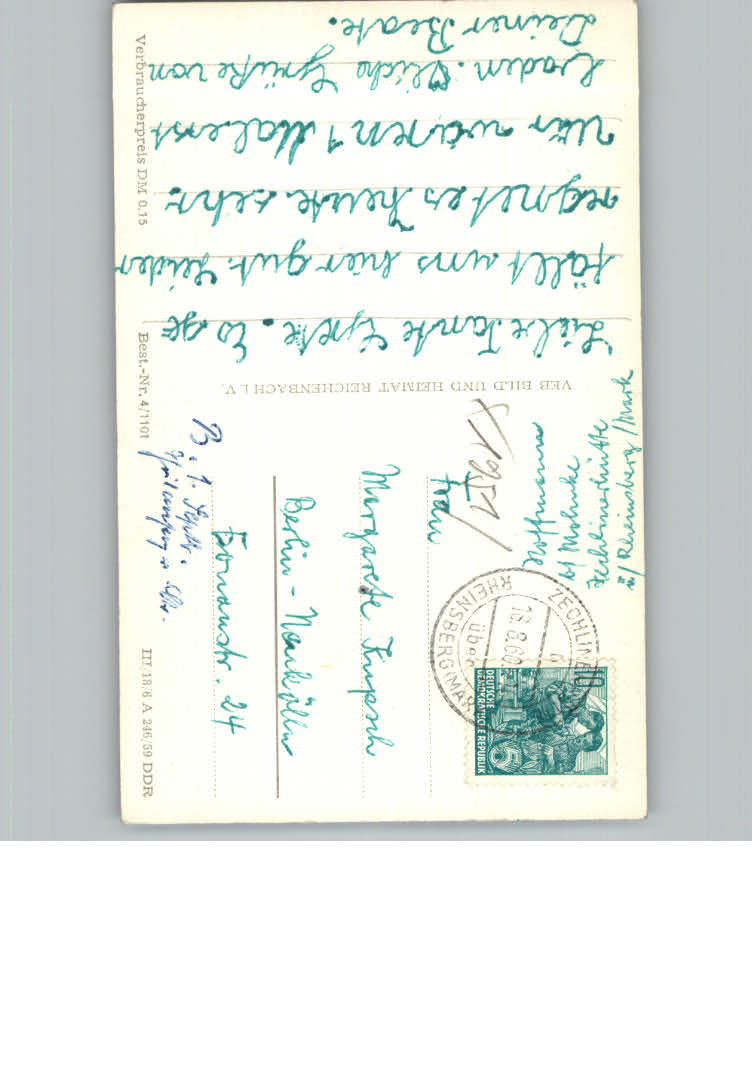 Liebe Tante Grete. Es ge
fällt uns hier gut. Leider
regnet es heute sehr.
Wir waren 1 Mal erst
baden. Viele Grüße von
Deiner Beate.
VEB BILD UND HEIMAT REICHENBACH I. V.
Hoffmann
b/ Mohnke
Zechlinerhütte
ü/ Rheinsberg/Mark
ZECHLINER
über
RHEINSBERG (MARK)
16.8.60
10
DEUTSCHE
DEMOKRATISCHE REPUBLIK
Frau
Margarete Krupsch
Berlin-Neukölln
Donaustr. 24
B. 1. Septr.
Verbraucherpreis DM 0,15
Best.-Nr. 4/1101
III/18/6 A 246/59 DDR